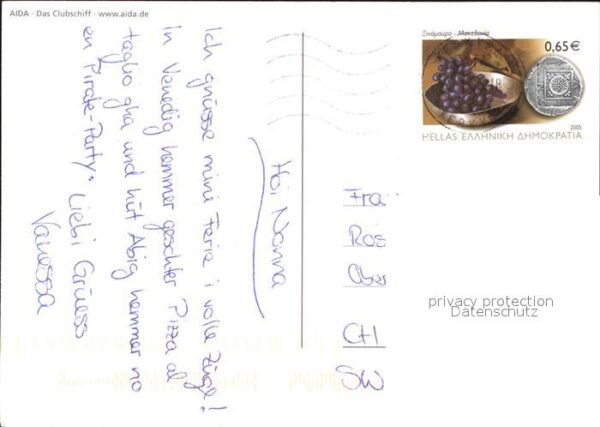 AIDA · Das Clubschiff · www.aida.de
Hoi Nonna
Ich gnüsse mini Ferie i volle Züge!
in Venedig hemmer geschter Pizza al
taglio gha und hüt Abig hemmer no
en Pirate-Party.
Liebi Grüess
Vanessa
Ξινόμαυρο - Μακεδονία
0,65€
2005
HELLAS ΕΛΛΗΝΙΚΗ ΔΗΜΟΚΡΑΤΙΑ
Fra
Rös
Aber
CH
SW
privacy protection
Datenschutz